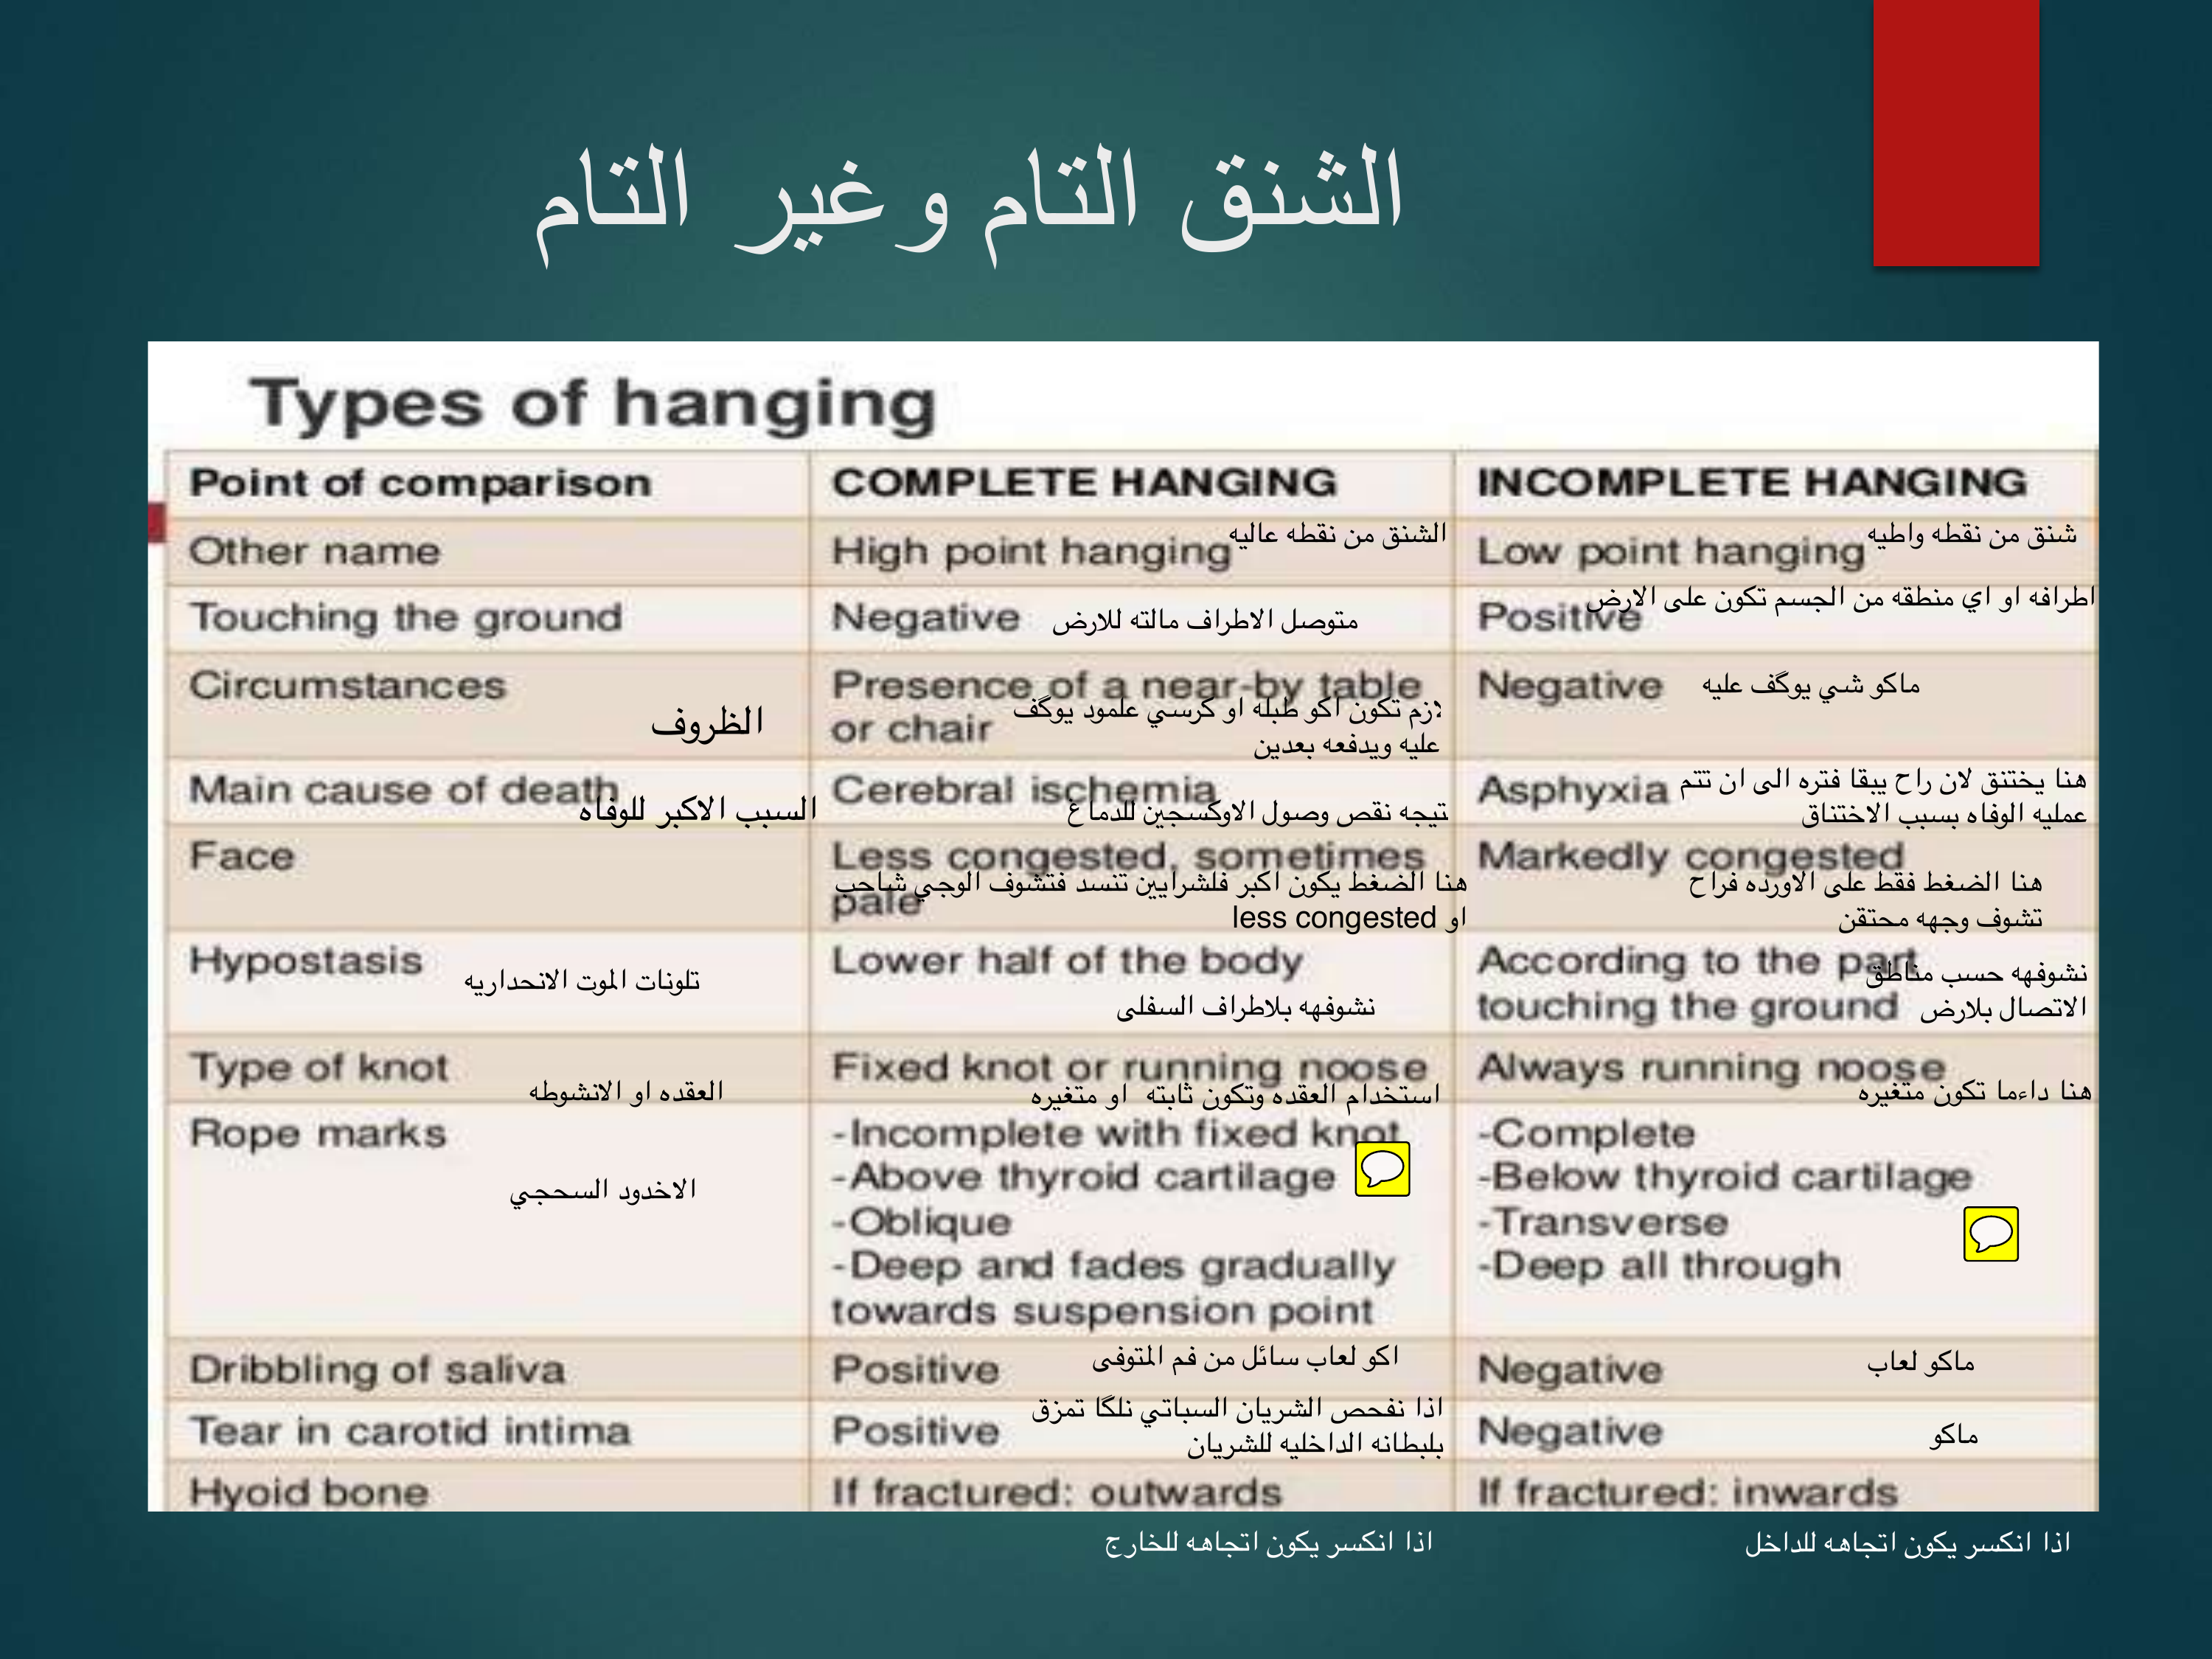 الشنق التام وغير التام
Types of hanging
Point of comparison
COMPLETE HANGING
INCOMPLETE HANGING
Other name
High point hanging
الشنق من نقطه عاليه
Low point hanging
شنق من نقطه واطيه
Touching the ground
Negative
متوصل الاطراف مالته للارض
Positive
اطرافه او اي منطقه من الجسم تكون على الارض
Circumstances
الظروف
Presence of a near-by table
or chair
لازم تكون اكو طبله او كرسي علمود يوگف
عليه ويدفعه بعدين
Negative
ماكو شي يوگف عليه
Main cause of death
السبب الاكبر للوفاه
Cerebral ischemia
نتيجه نقص وصول الاوكسجين للدماغ
Asphyxia
هنا يختنق لان راح يبقا فتره الى ان تتم
عمليه الوفاه بسبب الاختناق
Face
Less congested, sometimes
pale
هنا الضغط يكون اكبر فلشرايين تنسد فتشوف الوجي شاحب
او less congested
Markedly congested
هنا الضغط فقط على الاورده فراح
تشوف وجهه محتقن
Hypostasis
تلونات الموت الانحداريه
Lower half of the body
نشوفهه بلاطراف السفلى
According to the part
touching the ground
نشوفهه حسب مناطق
الاتصال بلارض
Type of knot
العقده او الانشوطه
Fixed knot or running noose
استخدام العقده وتكون ثابته او متغيره
Always running noose
هنا داءما تكون متغيره
Rope marks
الاخدود السحجي
-Incomplete with fixed knot
-Above thyroid cartilage
-Oblique
-Deep and fades gradually
towards suspension point
-Complete
-Below thyroid cartilage
-Transverse
-Deep all through
Dribbling of saliva
Positive
اكو لعاب سائل من فم المتوفى
Negative
ماكو لعاب
Tear in carotid intima
Positive
اذا نفحص الشريان السباتي نلگا تمزق
بلبطانه الداخليه للشريان
Negative
ماكو
Hyoid bone
If fractured: outwards
If fractured: inwards
اذا انكسر يكون اتجاهه للخارج
اذا انكسر يكون اتجاهه للداخل